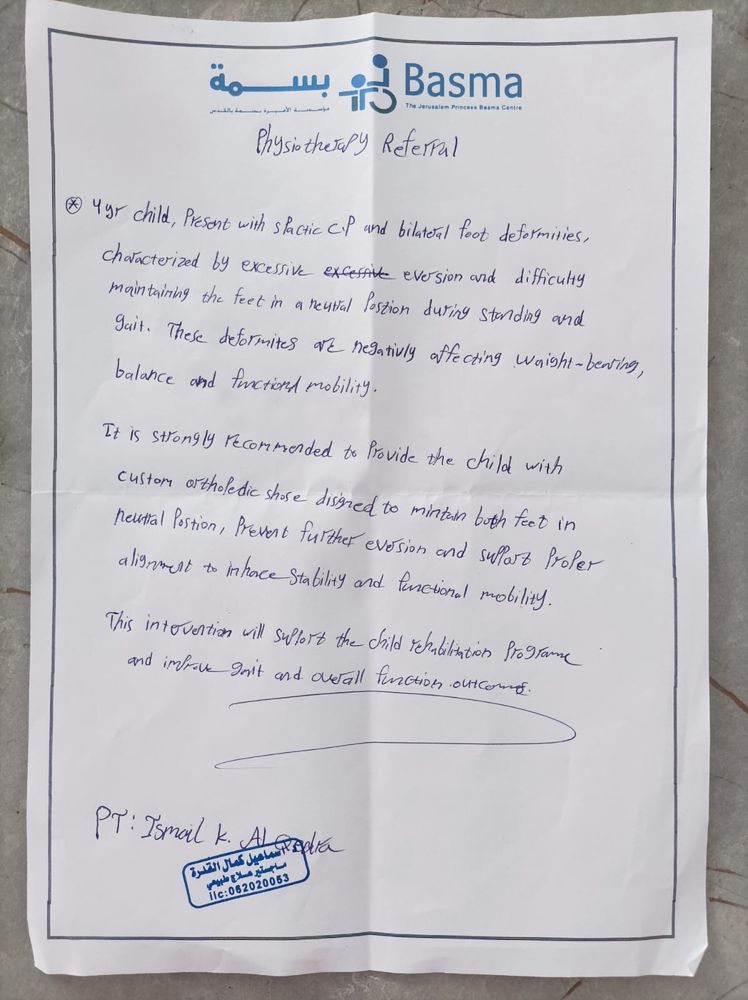 بسمة Basma
مؤسسة الأميرة بسمة بالقدس The Jerusalem Princess Basma Centre
Physiotherapy Referral
4yr child, Present with spactic C.P and bilateral foot deformities,
characterized by excessive excessive eversion and difficulty
maintaining the feet in a neutral Postion during standing and
gait. These deformites are negativly affecting waight-bearing,
balance and functional mobility.
It is strongly recommended to Provide the child with
custom orthopedic shose disigned to mintain both feet in
neutral Postion, Prevent further eversion and support Proper
alignment to inhace stability and functional mobility.
This intervention will support the child rehabilitation Programe
and improve gait and overall function outcoms.
PT: Ismail K. Al Qedra
اسماعيل كمال القدرة
ماجستير علاج طبيعي
lic:062020053